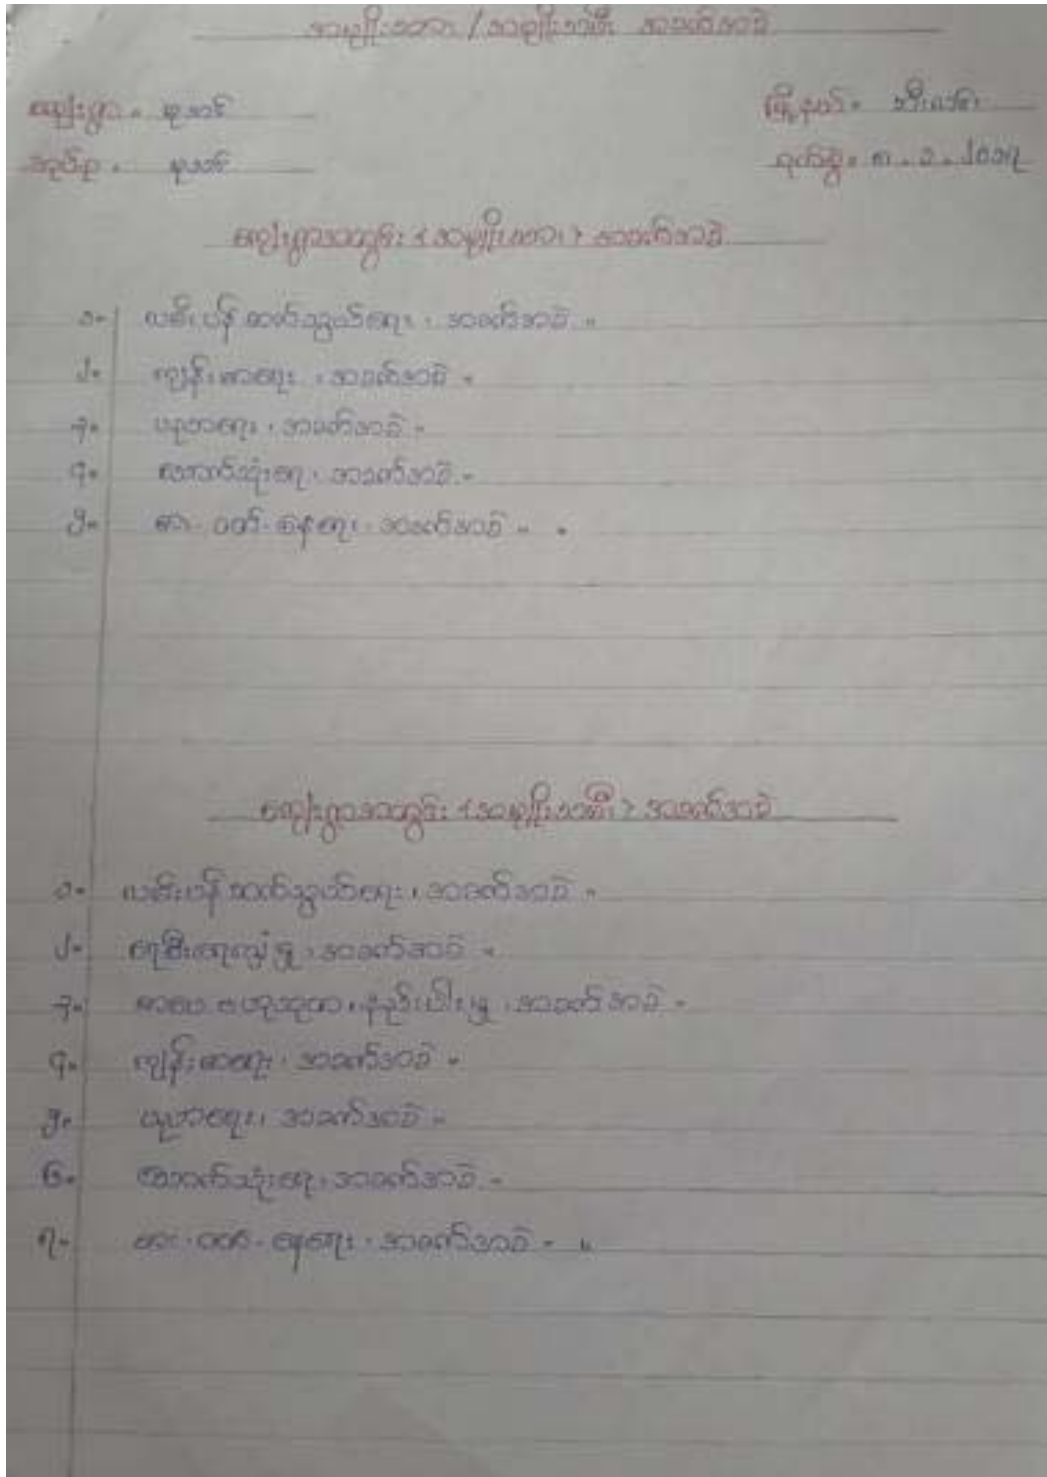 အမျိုးသား / အမျိုးသမီး အခက်အခဲ
ကျေးရွာ -
မြို့နယ် -
အုပ်စု -
ရက်စွဲ - ၈ - ၁ - ၂၀၁၇
ကျေးရွာအတွင်း < အမျိုးသား > အခက်အခဲ
၁။ လမ်းပန်းဆက်သွယ်ရေး ၊ အခက်အခဲ ။
၂။ ကျန်းမာရေး ၊ အခက်အခဲ ။
၃။ ပညာရေး ၊ အခက်အခဲ ။
၄။ သောက်သုံးရေ ၊ အခက်အခဲ ။
၅။ စား ၊ ဝတ် ၊ နေရေး ၊ အခက်အခဲ ။ ။
ကျေးရွာအတွင်း < အမျိုးသမီး > အခက်အခဲ
၁။ လမ်းပန်းဆက်သွယ်ရေး ၊ အခက်အခဲ ။
၂။ အခက်အခဲ ။
၃။ စာပေ ဗဟုသုတ ၊ နည်းပါးမှု ၊ အခက်အခဲ ။
၄။ ကျန်းမာရေး ၊ အခက်အခဲ ။
၅။ ပညာရေး ၊ အခက်အခဲ ။
၆။ သောက်သုံးရေ ၊ အခက်အခဲ ။
၇။ စား ၊ ဝတ် ၊ နေရေး ၊ အခက်အခဲ ။ ။